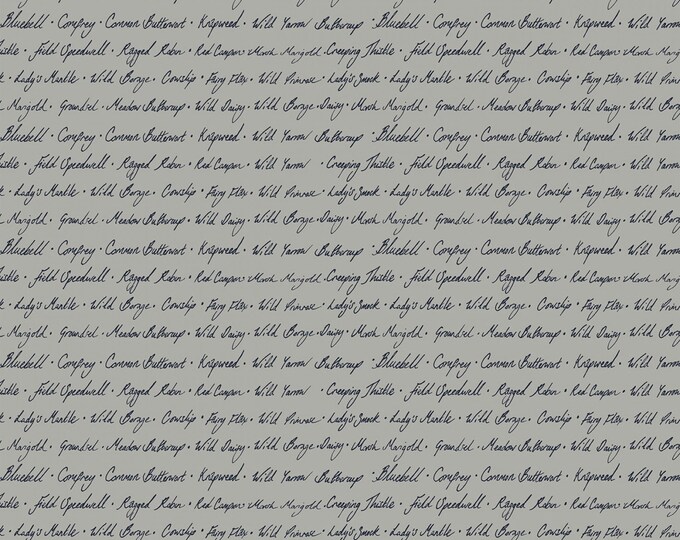 Bluebell · Comfrey · Common Butterwort · Knapweed · Wild Yarrow Buttercup · Bluebell · Comfrey · Common Butterwort · Knapweed · Wild Yarrow
Thistle · Field Speedwell · Ragged Robin · Red Campion · Marsh Marigold Creeping Thistle · Field Speedwell · Ragged Robin · Red Campion · Marsh Marigold
· Lady's Mantle · Wild Borage · Cowslip · Fairy Flax · Wild Primrose · Lady's Smock · Lady's Mantle · Wild Borage · Cowslip · Fairy Flax · Wild Primrose
Marigold · Groundsel · Meadow Buttercup · Wild Daisy · Wild Borage · Daisy · Marsh Marigold · Groundsel · Meadow Buttercup · Wild Daisy · Wild
· Bluebell · Comfrey · Common Butterwort · Knapweed · Wild Yarrow Buttercup · Bluebell · Comfrey · Common Butterwort · Knapweed · Wild Yarrow
Thistle · Field Speedwell · Ragged Robin · Red Campion · Wild Yarrow · Creeping Thistle · Field Speedwell · Ragged Robin · Red Campion · Wild Yarrow
· Lady's Mantle · Wild Borage · Cowslip · Fairy Flax · Wild Primrose Lady's Smock · Lady's Mantle · Wild Borage · Cowslip · Fairy Flax · Wild Primrose
Marigold · Groundsel · Meadow Buttercup · Wild Daisy · Wild Borage · Daisy · Marsh Marigold · Groundsel · Meadow Buttercup · Wild Daisy · Wild
· Bluebell · Comfrey · Common Butterwort · Knapweed · Wild Yarrow Buttercup · Bluebell · Comfrey · Common Butterwort · Knapweed · Wild Yarrow
Thistle · Field Speedwell · Ragged Robin · Red Campion · Marsh Marigold Creeping Thistle · Field Speedwell · Ragged Robin · Red Campion · Marsh Marigold
· Lady's Mantle · Wild Borage · Cowslip · Fairy Flax · Wild Primrose · Lady's Smock · Lady's Mantle · Wild Borage · Cowslip · Fairy Flax · Wild Primrose
Marigold · Groundsel · Meadow Buttercup · Wild Daisy · Wild Borage · Daisy · Marsh Marigold · Groundsel · Meadow Buttercup · Wild Daisy · Wild
Bluebell · Comfrey · Common Butterwort · Knapweed · Wild Yarrow Buttercup · Bluebell · Comfrey · Common Butterwort · Knapweed · Wild Yarrow
Thistle · Field Speedwell · Ragged Robin · Red Campion · Wild Yarrow · Creeping Thistle · Field Speedwell · Ragged Robin · Red Campion · Wild Yarrow
· Lady's Mantle · Wild Borage · Cowslip · Fairy Flax · Wild Primrose · Lady's Smock · Lady's Mantle · Wild Borage · Cowslip · Fairy Flax · Wild Primrose
Marigold · Groundsel · Meadow Buttercup · Wild Daisy · Wild Borage · Daisy · Marsh Marigold · Groundsel · Meadow Buttercup · Wild Daisy · Wild
· Bluebell · Comfrey · Common Butterwort · Knapweed · Wild Yarrow Buttercup · Bluebell · Comfrey · Common Butterwort · Knapweed · Wild Yarrow
Thistle · Field Speedwell · Ragged Robin · Red Campion · Marsh Marigold Creeping Thistle · Field Speedwell · Ragged Robin · Red Campion · Marsh Marigold
· Lady's Mantle · Wild Borage · Cowslip · Fairy Flax · Wild Primrose · Lady's Smock · Lady's Mantle · Wild Borage · Cowslip · Fairy Flax · Wild Primrose